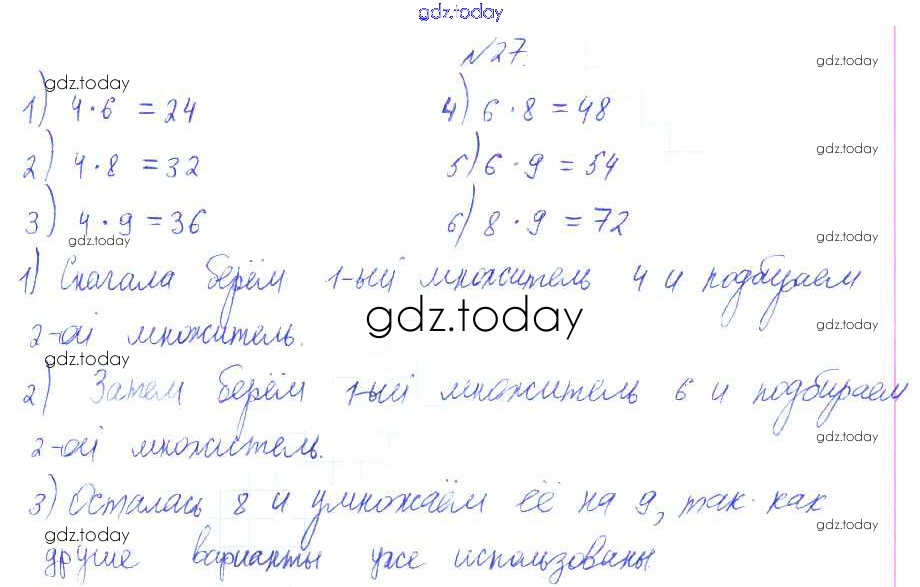 gdz.today
№27.
gdz.today
gdz.today
1) 4·6 = 24 4) 6·8 = 48
2) 4·8 = 32 5) 6·9 = 54
gdz.today
3) 4·9 = 36 6) 8·9 = 72
gdz.today
gdz.today
1) Сначала берём 1-ый множитель 4 и подбираем
gdz.today
gdz.today
2-ой множитель.
gdz.today
gdz.today
2) Затем берём 1-ый множитель 6 и подбираем
2-ой множитель.
gdz.today
3) Осталась 8 и умножаем её на 9, так как
gdz.today
gdz.today
другие варианты уже использованы